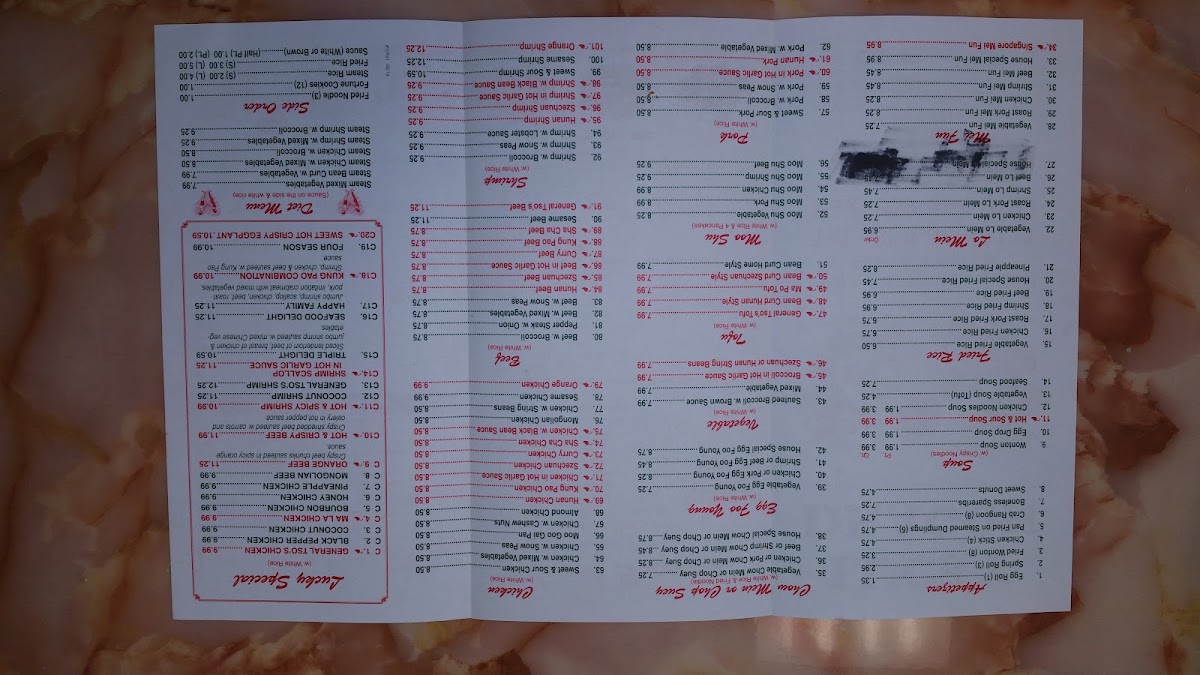 Appetizers
1. Egg Roll (1) 1.35
2. Spring Roll (3) 2.95
3. Fried Wonton (8) 3.25
4. Chicken Stick (4) 4.75
5. Pan Fried or Steamed Dumplings (6) 4.75
6. Crab Rangoon (8) 4.75
7. Boneless Spareribs 7.25
8. Sweet Donuts 4.75
Soup
(w. Crispy Noodles) Pt. Qt.
9. Wonton Soup 1.99 3.99
10. Egg Drop Soup 1.99 3.99
11. Hot & Sour Soup 1.99 3.99
12. Chicken Noodles Soup 1.99 3.99
13. Vegetable Soup (Tofu) 4.25
14. Seafood Soup 7.25
Fried Rice
15. Vegetable Fried Rice 6.50
16. Chicken Fried Rice 6.75
17. Roast Pork Fried Rice 6.75
18. Shrimp Fried Rice 6.95
19. Beef Fried Rice 6.95
20. House Special Fried Rice 7.45
21. Pineapple Fried Rice 8.25
Lo Mein
Order
22. Vegetable Lo Mein 6.95
23. Chicken Lo Mein 7.25
24. Roast Pork Lo Mein 7.25
25. Shrimp Lo Mein 7.45
26. Beef Lo Mein
27. House Special Lo Mein
Mei Fun
28. Vegetable Mei Fun 7.25
29. Roast Pork Mei Fun 8.25
30. Chicken Mei Fun 8.25
31. Shrimp Mei Fun 8.45
32. Beef Mei Fun 8.45
33. House Special Mei Fun 8.95
34. Singapore Mei Fun 8.95
Chow Mein or Chop Suey
(w. White Rice & Fried Noodle)
35. Vegetable Chow Mein or Chop Suey 7.25
36. Chicken or Pork Chow Mein or Chop Suey 8.25
37. Beef or Shrimp Chow Mein or Chop Suey 8.45
38. House Special Chow Mein or Chop Suey 8.75
Egg Foo Young
(w. White Rice)
39. Vegetable Egg Foo Young 7.25
40. Chicken or Pork Egg Foo Young 8.25
41. Shrimp or Beef Egg Foo Young 8.45
42. House Special Egg Foo Young 8.75
Vegetable
(w. White Rice)
43. Sauteed Broccoli w. Brown Sauce 7.99
44. Mixed Vegetable 7.99
45. Broccoli in Hot Garlic Sauce 7.99
46. Szechuan or Hunan String Beans 7.99
Tofu
(w. White Rice)
47. General Tso's Tofu 7.99
48. Bean Curd Hunan Style 7.99
49. Ma Po Tofu 7.99
50. Bean Curd Szechuan Style 7.99
51. Bean Curd Home Style 7.99
Moo Shu
(w. White Rice & 4 Pancakes)
52. Moo Shu Vegetable 8.25
53. Moo Shu Pork 8.99
54. Moo Shu Chicken 8.99
55. Moo Shu Shrimp 9.25
56. Moo Shu Beef 9.25
Pork
(w. White Rice)
57. Sweet & Sour Pork 8.50
58. Pork w. Broccoli 8.50
59. Pork w. Snow Peas 8.50
60. Pork in Hot Garlic Sauce 8.50
61. Hunan Pork 8.50
62. Pork w. Mixed Vegetable 8.50
Chicken
(w. White Rice)
63. Sweet & Sour Chicken 8.50
64. Chicken w. Mixed Vegetables 8.50
65. Chicken w. Snow Peas 8.50
66. Moo Goo Gai Pan 8.50
67. Chicken w. Cashew Nuts 8.50
68. Almond Chicken 8.50
69. Hunan Chicken 8.50
70. Kung Pao Chicken 8.50
71. Chicken in Hot Garlic Sauce 8.50
72. Szechuan Chicken 8.50
73. Curry Chicken 8.50
74. Sha Cha Chicken 8.50
75. Chicken w. Black Bean Sauce 8.50
76. Mongolian Chicken 8.50
77. Chicken w. String Beans 8.50
78. Sesame Chicken 9.99
79. Orange Chicken 9.99
Beef
(w. White Rice)
80. Beef w. Broccoli 8.75
81. Pepper Steak w. Onion 8.75
82. Beef w. Mixed Vegetables 8.75
83. Beef w. Snow Peas 8.75
84. Hunan Beef 8.75
85. Szechuan Beef 8.75
86. Beef in Hot Garlic Sauce 8.75
87. Curry Beef 8.75
88. Kung Pao Beef 8.75
89. Sha Cha Beef 8.75
90. Sesame Beef 11.25
91. General Tso's Beef 11.25
Shrimp
(w. White Rice)
92. Shrimp w. Broccoli 9.25
93. Shrimp w. Snow Peas 9.25
94. Shrimp w. Lobster Sauce 9.25
95. Hunan Shrimp 9.25
96. Szechuan Shrimp 9.25
97. Shrimp in Hot Garlic Sauce 9.25
98. Shrimp w. Black Bean Sauce 9.25
99. Sweet & Sour Shrimp 10.59
100. Sesame Shrimp 12.25
101. Orange Shrimp 12.25
Lucky Special
(w. White Rice)
C 1. GENERAL TSO'S CHICKEN 9.99
C 2. BLACK PEPPER CHICKEN 9.99
C 3. COCONUT CHICKEN 9.99
C 4. MA LA CHICKEN 9.99
C 5. BOURBON CHICKEN 9.99
C 6. HONEY CHICKEN 9.99
C 7. PINEAPPLE CHICKEN 9.99
C 8. MONGOLIAN BEEF 9.99
C 9. ORANGE BEEF 11.25
Crispy beef chunks sauteed in spicy orange
sauce
C10. HOT & CRISPY BEEF 11.99
Crispy shredded beef sauteed w carrots and
celery in hot pepper sauce
C11. HOT & SPICY SHRIMP 10.99
C12. COCONUT SHRIMP 12.25
C13. GENERAL TSO'S SHRIMP 12.25
C14. SHRIMP SCALLOP
IN HOT GARLIC SAUCE 11.25
C15. TRIPLE DELIGHT 10.59
Sliced tenderloin of beef, breast of chicken &
jumbo shrimp sauteed w. mixed Chinese veg-
etables
C16. SEAFOOD DELIGHT 11.25
C17. HAPPY FAMILY 11.25
Jumbo shrimp, scallop, chicken, beef, roast
pork, imitation crabmeat with mixed vegetables
C18. KUNG PAO COMBINATION 10.99
Shrimp, chicken & beef sauteed w. Kung Pao
sauce
C19. FOUR SEASON 10.99
C20. SWEET HOT CRISPY EGGPLANT 10.59
Diet Menu
(Sauce on the side & white rice)
Steam Mixed Vegetables 7.99
Steam Bean Curd w. Vegetables 7.99
Steam Chicken w. Mixed Vegetables 8.50
Steam Chicken Broccoli 8.50
Steam Shrimp w. Mixed Vegetables 9.25
Steam Shrimp w. Broccoli 9.25
Side Order
Fried Noodle (3) 1.00
Fortune Cookies (12) 1.00
Steam Rice (S) 2.00 (L) 4.00
Fried Rice (S) 3.00 (L) 5.00
Sauce (White or Brown) (Half Pt.) 1.00 (Pt.) 2.00